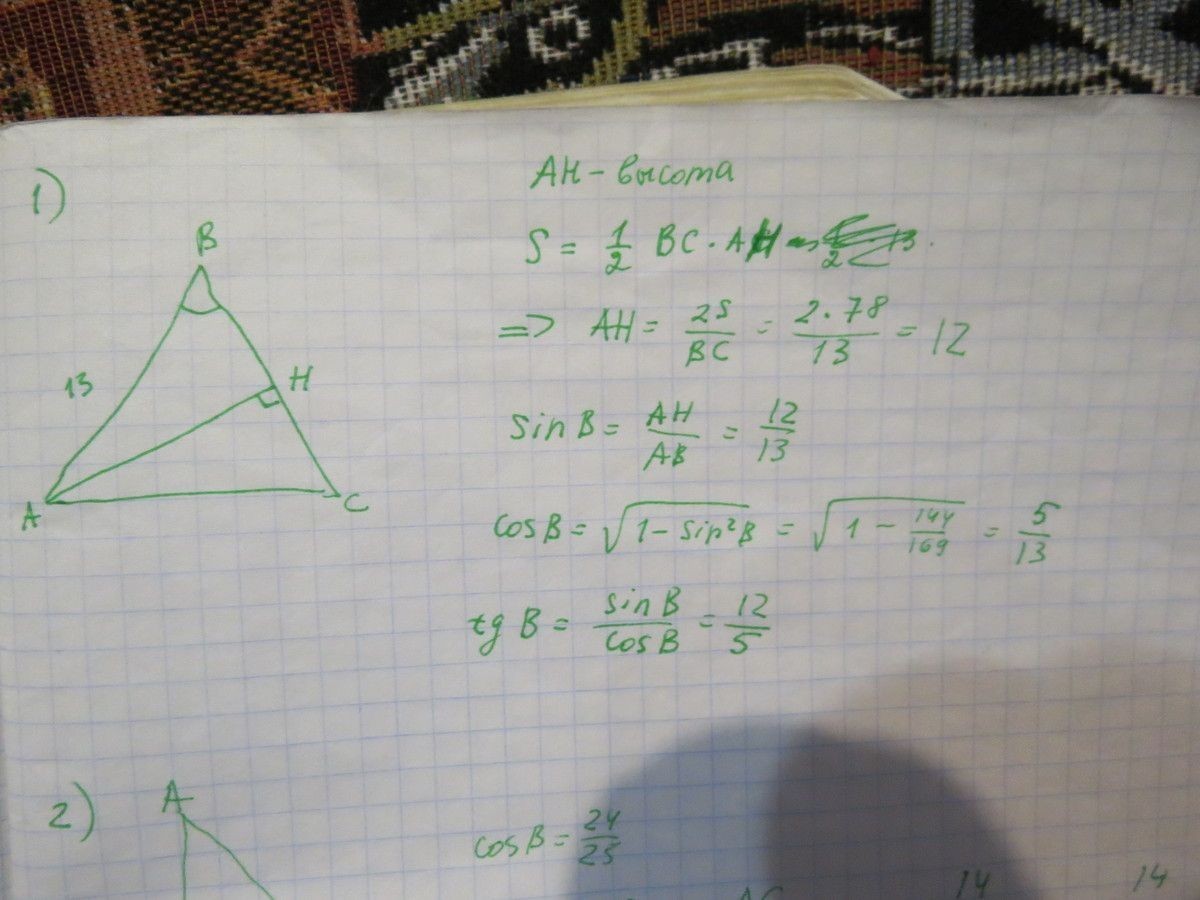 1)
AH - высота
B
S = 1/2 BC · AH
=> AH = 2S/BC = 2·78/13 = 12
13
H
sin B = AH/AB = 12/13
A
C
cos B = √(1 - sin²B) = √(1 - 144/169) = 5/13
tg B = sin B/cos B = 12/5
2)
A
cos B = 24/25
14
14